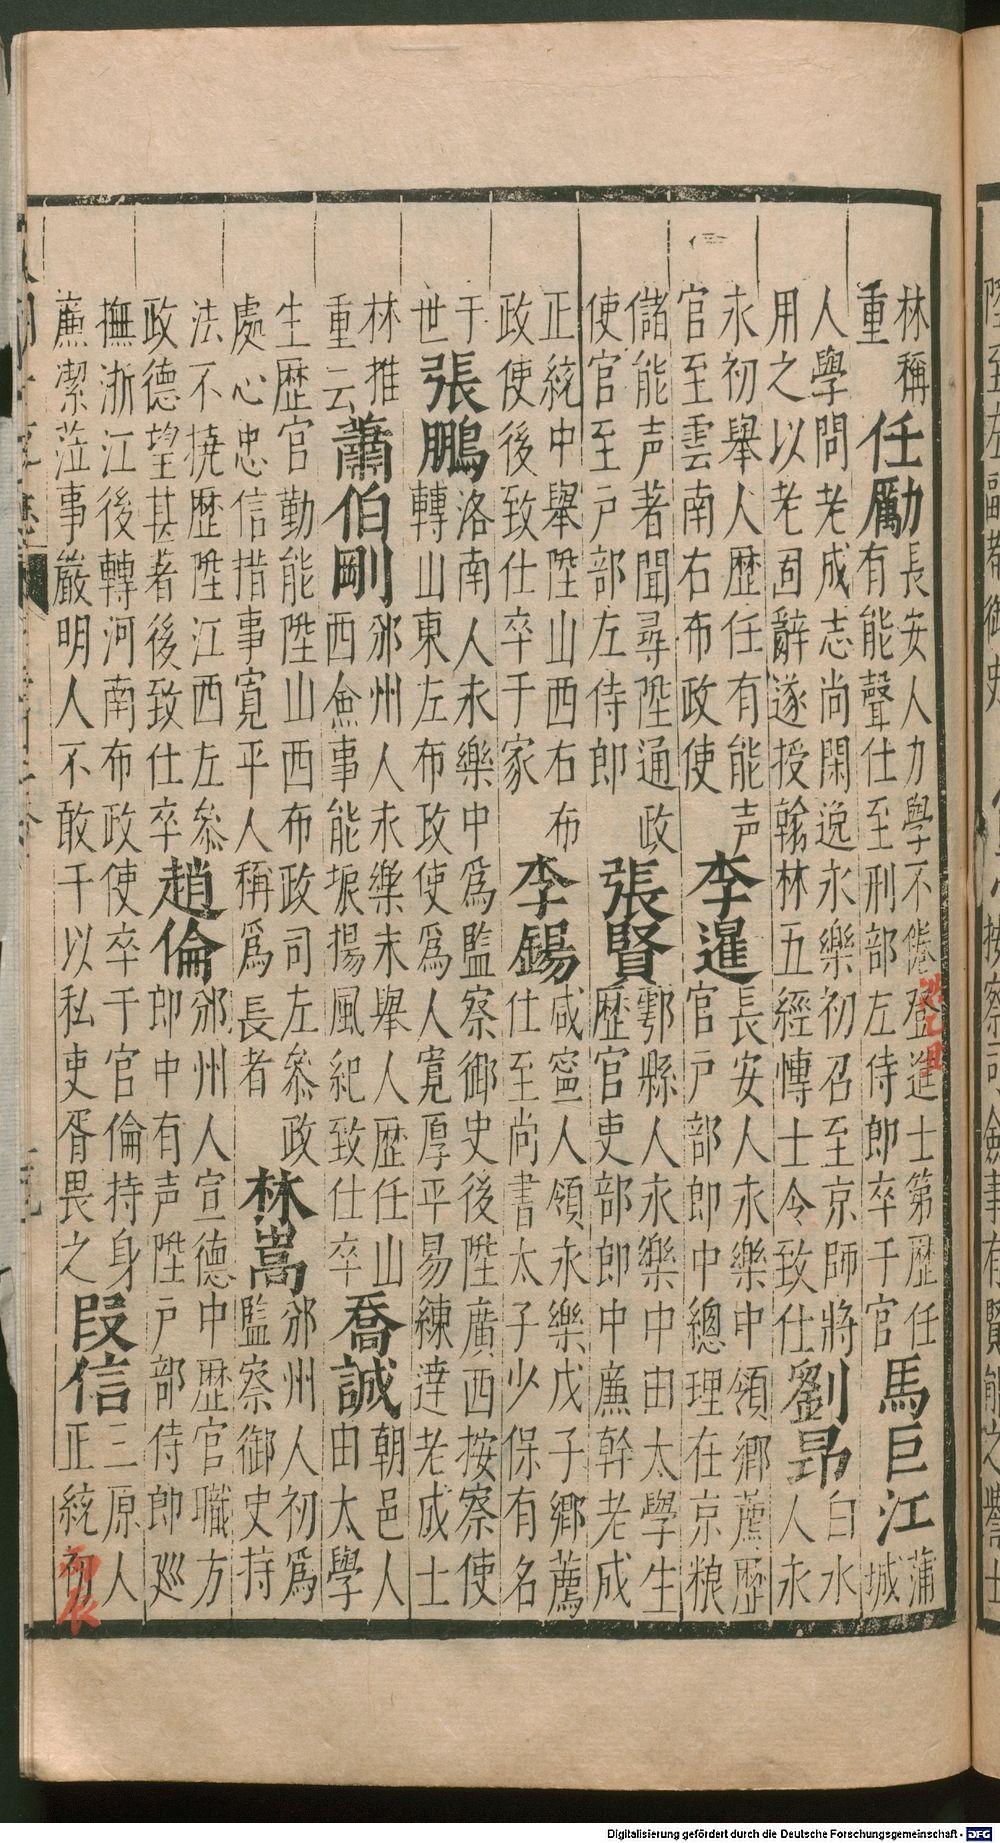 林稱
重
任勵
長安人力學不倦登進士第歷任
有能聲仕至刑部左侍郎卒于官
馬巨江
蒲
城
人學問老成志尚閑逸永樂初召至京師將
用之以老固辭遂授翰林五經博士令致仕
劉昂
白水
人永
永初舉人歷任有能声
官至雲南右布政使
李暹
長安人永樂中領鄉薦歷
官戶部郎中總理在京粮
儲能声著聞尋陞通政
使官至戶部左侍郎
張賢
鄠縣人永樂中由太學生
歷官吏部郎中廉幹老成
正統中舉陞山西右布
政使後致仕卒于家
李錫
咸寧人領永樂戊子鄉薦
仕至尚書太子少保有名
于
世
張鵬
洛南人永樂中為監察御史後陞廣西按察使
轉山東左布政使為人寬厚平易練達老成士
林推
重云
蕭伯剛
邠州人永樂末舉人歷任山
西僉事能振揚風紀致仕卒
喬誠
朝邑人
由太學
生歷官勤能陞山西布政司左叅政
處心忠信措事寬平人稱為長者
林嵩
邠州人初為
監察御史持
法不撓歷陞江西左叅
政德望甚著後致仕卒
趙倫
邠州人宣德中歷官職方
郎中有声陞戶部侍郎巡
撫浙江後轉河南布政使卒于官倫持身
廉潔蒞事嚴明人不敢干以私吏胥畏之
段信
三原人
正統初
丙辰
Digitalisierung gefördert durch die Deutsche Forschungsgemeinschaft - DFG